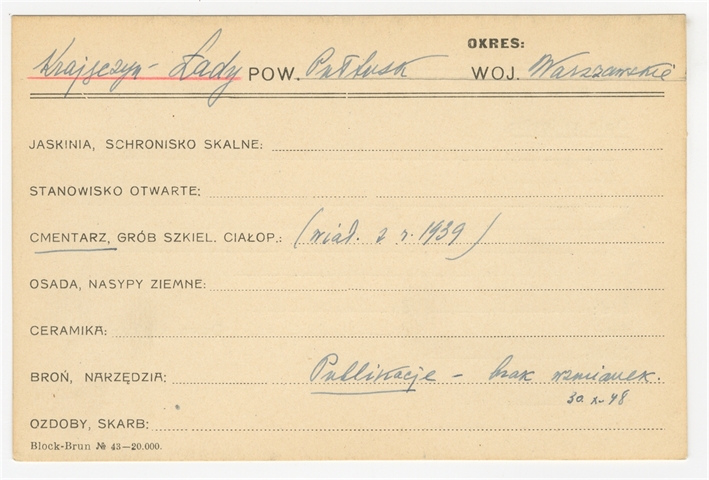 OKRES:
Krajęczyn - Łady POW. Pułtusk WOJ. Warszawskie
JASKINIA, SCHRONISKO SKALNE:
STANOWISKO OTWARTE:
CMENTARZ, GRÓB SZKIEL. CIAŁOP.: (wiad. z r. 1939)
OSADA, NASYPY ZIEMNE:
CERAMIKA:
BROŃ, NARZĘDZIA: Publikacje - brak wzmianek.
30 X-48
OZDOBY, SKARB:
Block-Brun № 43—20.000.